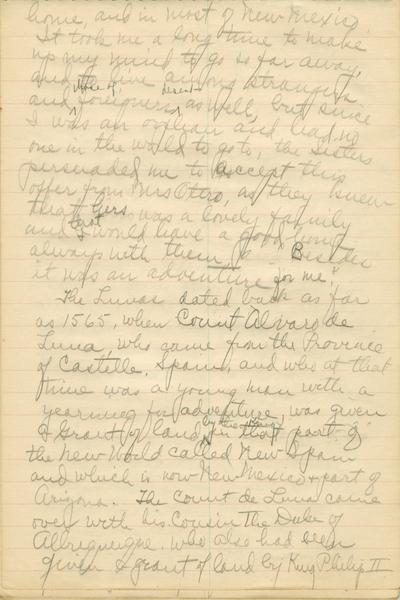 home, and in most of New Mexico.
It took me a long time to make
up my mind to go so far away,
and to live among strangers,
and foreigners as well, but since
I was an orphan and had no
one in the world to go to, the Sisters
persuaded me to accept this
offer from Mrs Otero, as they knew
that hers was a lovely family
and that I would have a good home
always with them. Besides
it was an adventure for me."
The Lunas dated back as far
as 1565, when Count Alvaro de
Luna, who came from the Province
of Castelle, Spain, and who at that
time was a young man with a
yearning for adventure, was given
a Grant of land by the King in that part of
the New World called New Spain
and which is now New Mexico & part of
Arizona. The Count de Luna came
over with his Cousin The Duke of
Alburquerque, who also had been
given a grant of land by King Philip II